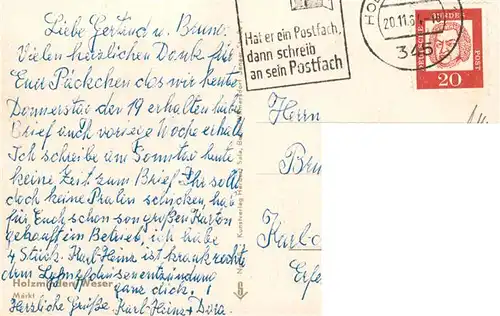 Liebe Gertrud u. Bruno!
Vielen herzlichen Dank für
Euer Päckchen das wir heute
Donnerstag den 19 erhalten habe
Brief auch vorige Woche erhalt.
Ich schreibe am Sonntag heute
keine Zeit zum Brief Ihr sollt
doch keine Pralin schicken, hab
für Euch schon son großen Karton
gekauft im Betrieb, ich habe
4 Stück. Karl-Heinz ist krank rechts
dem Lymphdrüsenentzündung
ganz dick!
Herzliche Grüße. Karl-Heinz + Dora.
Holzminden/Weser
Markt
Kunstverlag
Hat er ein Postfach,
dann schreib
an sein Postfach
HO
20.11.6
345
DEUTSCHE BUNDESPOST
20
Herrn
Bru
Karl-